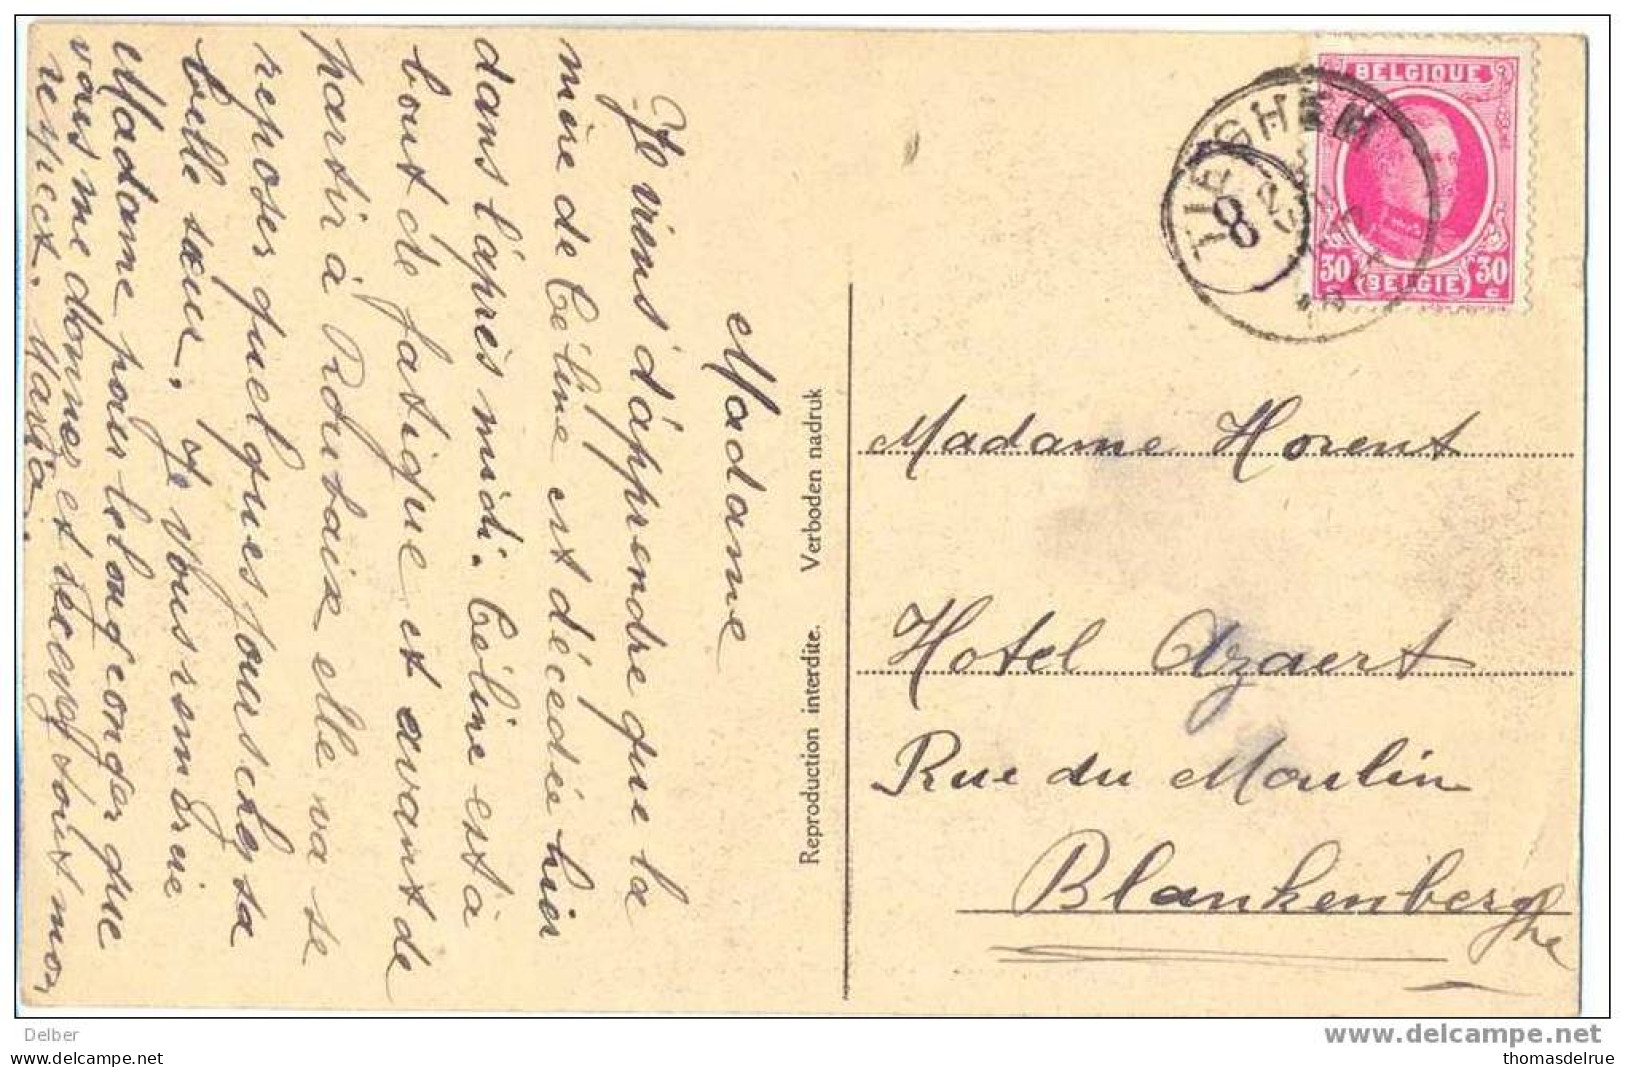 Madame
Je viens d'apprendre que la
mère de Céline est décédée hier
dans l'après midi. Céline est à
bout de fatigue et avant de
partir à Roubaix elle va se
reposer quelques jours chez sa
belle sœur. Je vous remercie
Madame pour le long congé que
vous me donnez et recevez tout mon
respect. Maria.
Reproduction interdite. Verboden nadruk
BELGIQUE
30 BELGIE 30
TIEGHEM
8
Madame Horent
Hotel Azaert
Rue du Moulin
Blankenberghe
Delber
delcampe.net
thomasdelrue